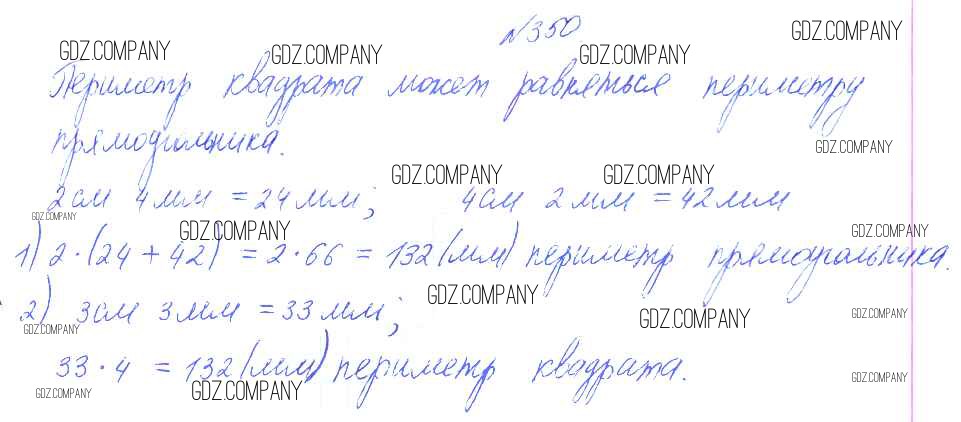 №350
GDZ.COMPANY GDZ.COMPANY GDZ.COMPANY GDZ.COMPANY
Периметр квадрата может равняться периметру
прямоугольника.
GDZ.COMPANY
GDZ.COMPANY GDZ.COMPANY
2 см 4 мм = 24 мм; 4 см 2 мм = 42 мм
GDZ.COMPANY GDZ.COMPANY GDZ.COMPANY
1) 2·(24 + 42) = 2·66 = 132 (мм) периметр прямоугольника.
GDZ.COMPANY
2) 3 см 3 мм = 33 мм;
GDZ.COMPANY GDZ.COMPANY GDZ.COMPANY
33·4 = 132 (мм) периметр квадрата.
GDZ.COMPANY GDZ.COMPANY GDZ.COMPANY